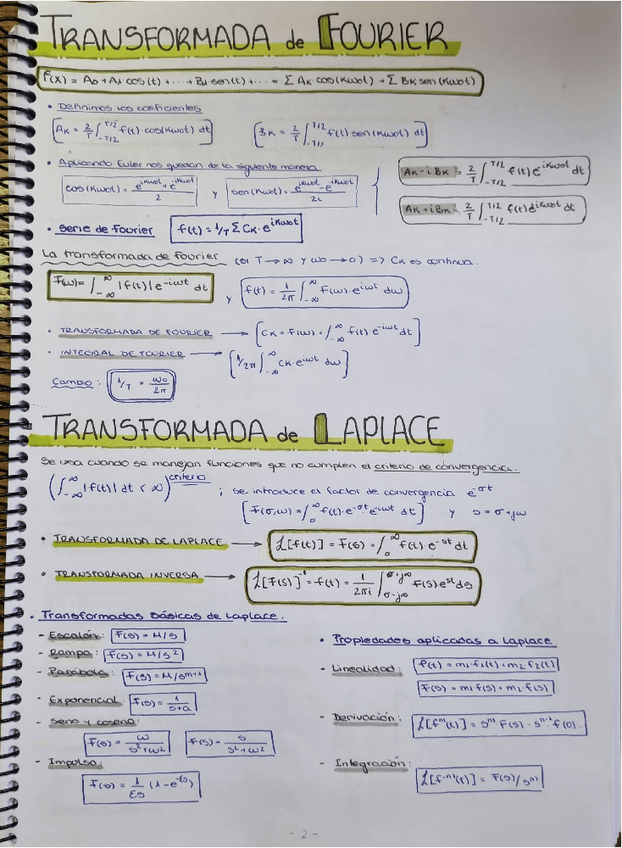 TRANSFORMADA de FOURIER
F(x) = A₀ + A₁ cos(t) + ... + B₁ sen(t) + ... = Σ Aₖ cos(kω₀t) + Σ Bₖ sen(kω₀t)
• Definimos los coeficientes
Aₖ = 2/T ∫_{-T/2}^{T/2} f(t) cos(kω₀t) dt    Bₖ = 2/T ∫_{-T/2}^{T/2} f(t) sen(kω₀t) dt
• Aplicando Euler nos quedan de la siguiente manera
cos(kω₀t) = (e^{ikω₀t} + e^{ikω₀t})/2 y sen(kω₀t) = (e^{ikω₀t} - e^{ikω₀t})/2i
Aₖ - iBₖ = 2/T ∫_{-T/2}^{T/2} f(t) e^{-ikω₀t} dt
Aₖ + iBₖ = 2/T ∫_{-T/2}^{T/2} f(t) e^{ikω₀t} dt
• Serie de Fourier f(t) = 1/T Σ Cₖ · e^{ikω₀t}
La transformada de fourier (si T → ∞ y ω₀ → 0) => Cₖ es continua.
F(ω) = ∫_{-∞}^{∞} |f(t)| e^{-iωt} dt y f(t) = 1/2π ∫_{-∞}^{∞} F(ω) e^{iωt} dω
• TRANSFORMADA DE FOURIER → [Cₖ = F(ω) = ∫_{-∞}^{∞} f(t) e^{-iωt} dt]
• INTEGRAL DE FOURIER → [1/2π ∫_{-∞}^{∞} Cₖ e^{iωt} dω]
Cambio: 1/T = ω₀/2π
TRANSFORMADA de LAPLACE
Se usa cuando se manejan funciones que no cumplen el criterio de convergencia.
(∫_{-∞}^{∞} |f(t)| dt < ∞) criterio ; se introduce el factor de convergencia e^{-σt}
[F(σ,ω) = ∫_{0}^{∞} f(t) · e^{-σt} · e^{-iωt} dt] y s = σ + jω
• TRANSFORMADA DE LAPLACE → ℒ[f(t)] = F(s) = ∫_{0}^{∞} f(t) e^{-st} dt
• TRANSFORMADA INVERSA → ℒ[F(s)]⁻¹ = f(t) = 1/2πi ∫_{σ-j∞}^{σ-j∞} F(s) e^{st} ds
• Transformadas Básicas de Laplace.
- Escalón: F(s) = M/s
- Rampa: F(s) = M/s²
- Parábola: F(s) = M/s^{m+1}
• Exponencial F(s) = 1/(s+a)
- Seno y coseno:
F(s) = ω/(s²+ω²)    F(s) = s/(s²+ω²)
- Impulso:
F(s) = 1/εs (1 - e^{-εs})
• Propiedades aplicadas a Laplace
- Linealidad: f(t) = m₁ f₁(t) + m₂ f₂(t)
F(s) = m₁ F(s) + m₂ · F(s)
- Derivación: ℒ[fᵐ(t)] = sᵐ F(s) · s^{n-1} f(0).
- Integración: ℒ[f⁻ᵐ(t)] = F(s)/sᵐ
- 2 -